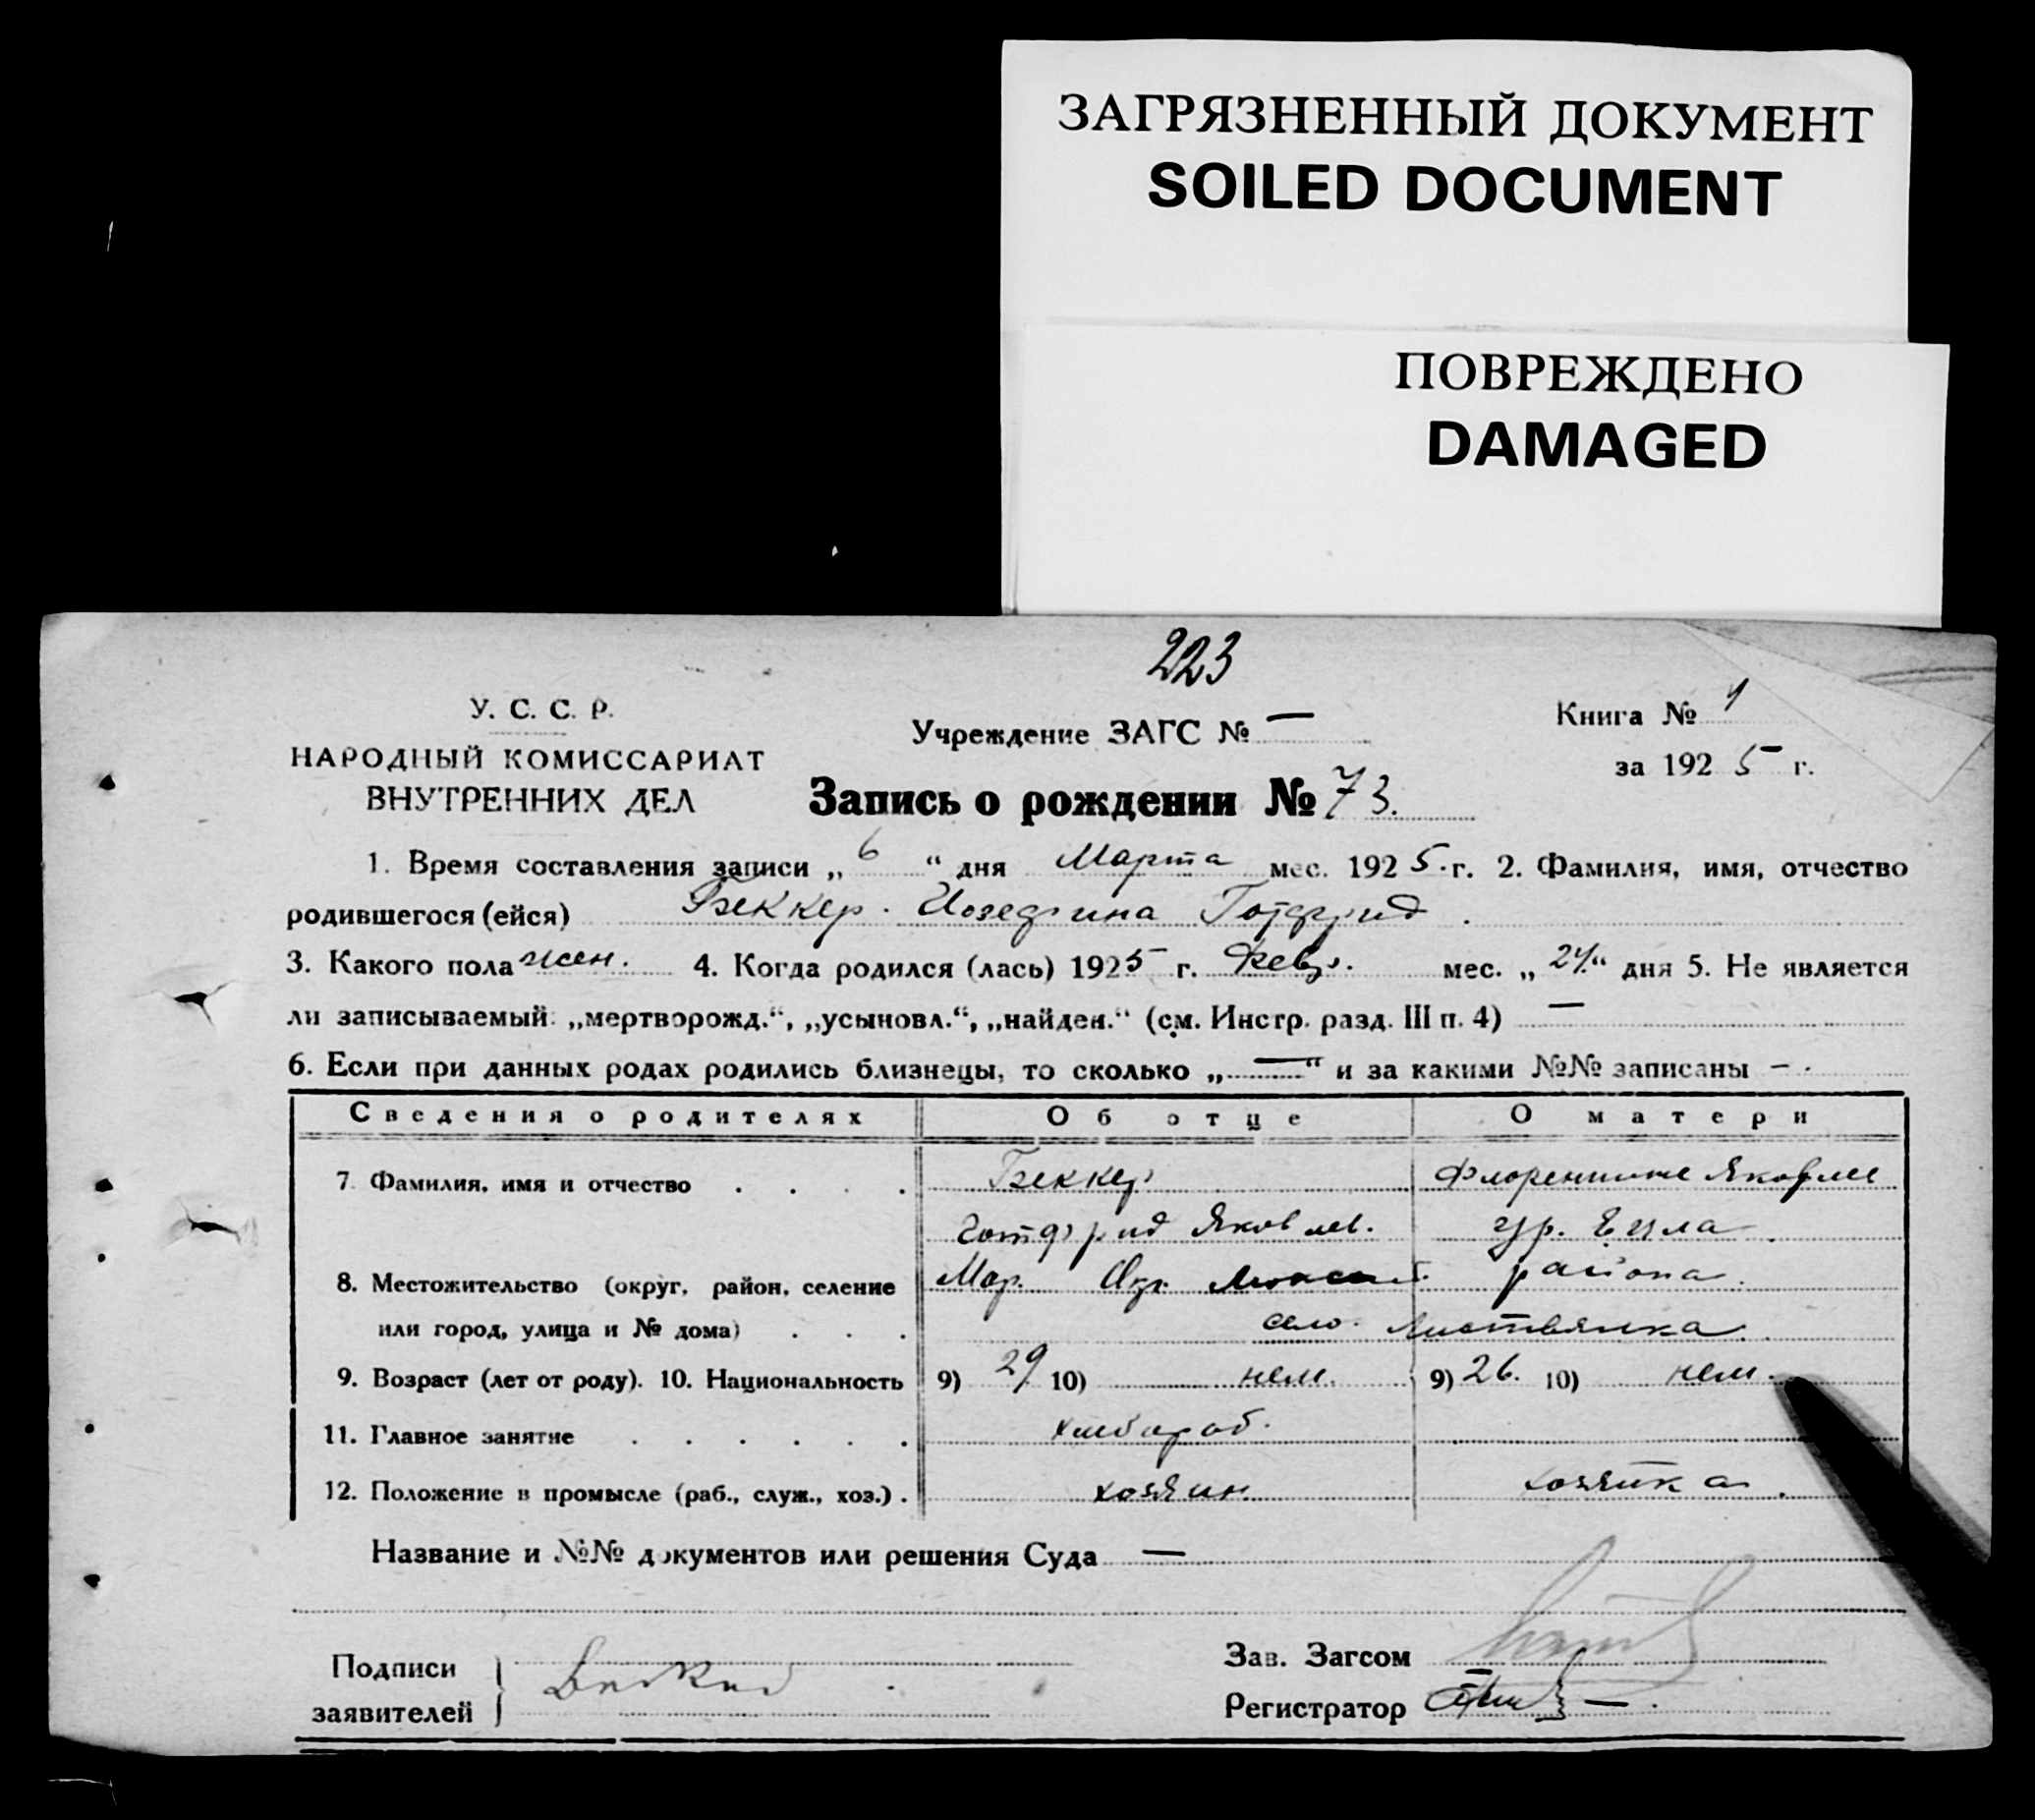 ЗАГРЯЗНЕННЫЙ ДОКУМЕНТ
SOILED DOCUMENT
ПОВРЕЖДЕНО
DAMAGED
223
У. С. С. Р.
НАРОДНЫЙ КОМИССАРИАТ
ВНУТРЕННИХ ДЕЛ
Учреждение ЗАГС № —
Книга № 1
за 1925 г.
Запись о рождении № 73.
1. Время составления записи „6“ дня Марта мес. 1925 г. 2. Фамилия, имя, отчество
родившегося (ейся) Беккер. Иозефина Готфрид.
3. Какого пола жен. 4. Когда родился (лась) 1925 г. Февр. мес. „24“ дня 5. Не является
ли записываемый: „мертворожд.“, „усыновл.“, „найден.“ (см. Инстр. разд. III п. 4) —
6. Если при данных родах родились близнецы, то сколько „—“ и за какими №№ записаны — .
Сведения о родителях Об отце О матери
7. Фамилия, имя и отчество . . . . Беккер
Готфрид Яковлев.
8. Местожительство (округ, район, селение Мар. Окр. района.
или город, улица и № дома) . . . село. Листвянка.
9. Возраст (лет от роду). 10. Национальность 9) 29 10) нем. 9) 26. 10) нем.
11. Главное занятие . . . . . . хлебороб.
12. Положение в промысле (раб., служ., хоз.) . хозяин хозяйка.
Название и №№ документов или решения Суда —
Подписи
заявителей
Зав. Загсом
Регистратор